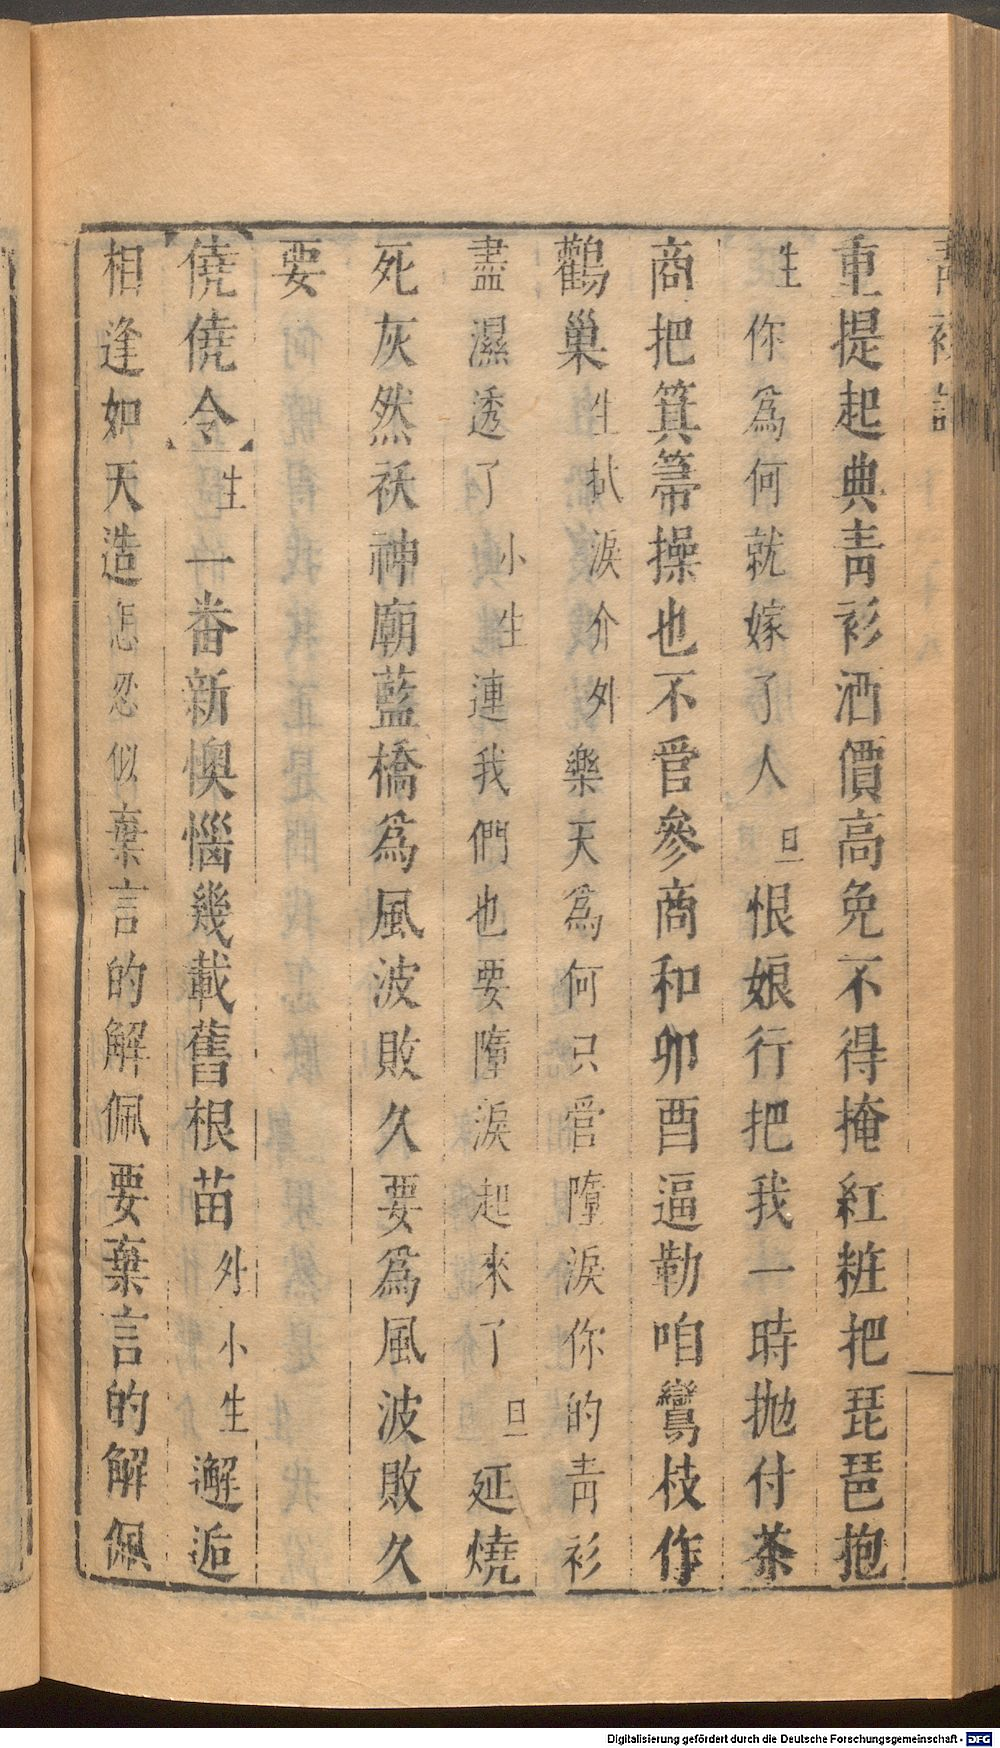 青衫記
重提起典青衫酒價高免不得掩紅粧把琵琶抱
生你爲何就嫁了人旦恨娘行把我一時拋付茶
商把箕箒操也不管參商和卯酉逼勒咱鸞枝作
鸛巢生拭淚介外樂天爲何只管墮淚你的青衫
盡濕透了小生連我們也要墮淚起來了旦延燒
死灰然祅神廟藍橋爲風波敗久要爲風波敗久
要
僥僥令生一番新懊惱幾載舊根苗外小生邂逅
相逢如天造怎忍似棄言的解佩要棄言的解佩
Digitalisierung gefördert durch die Deutsche Forschungsgemeinschaft - DFG